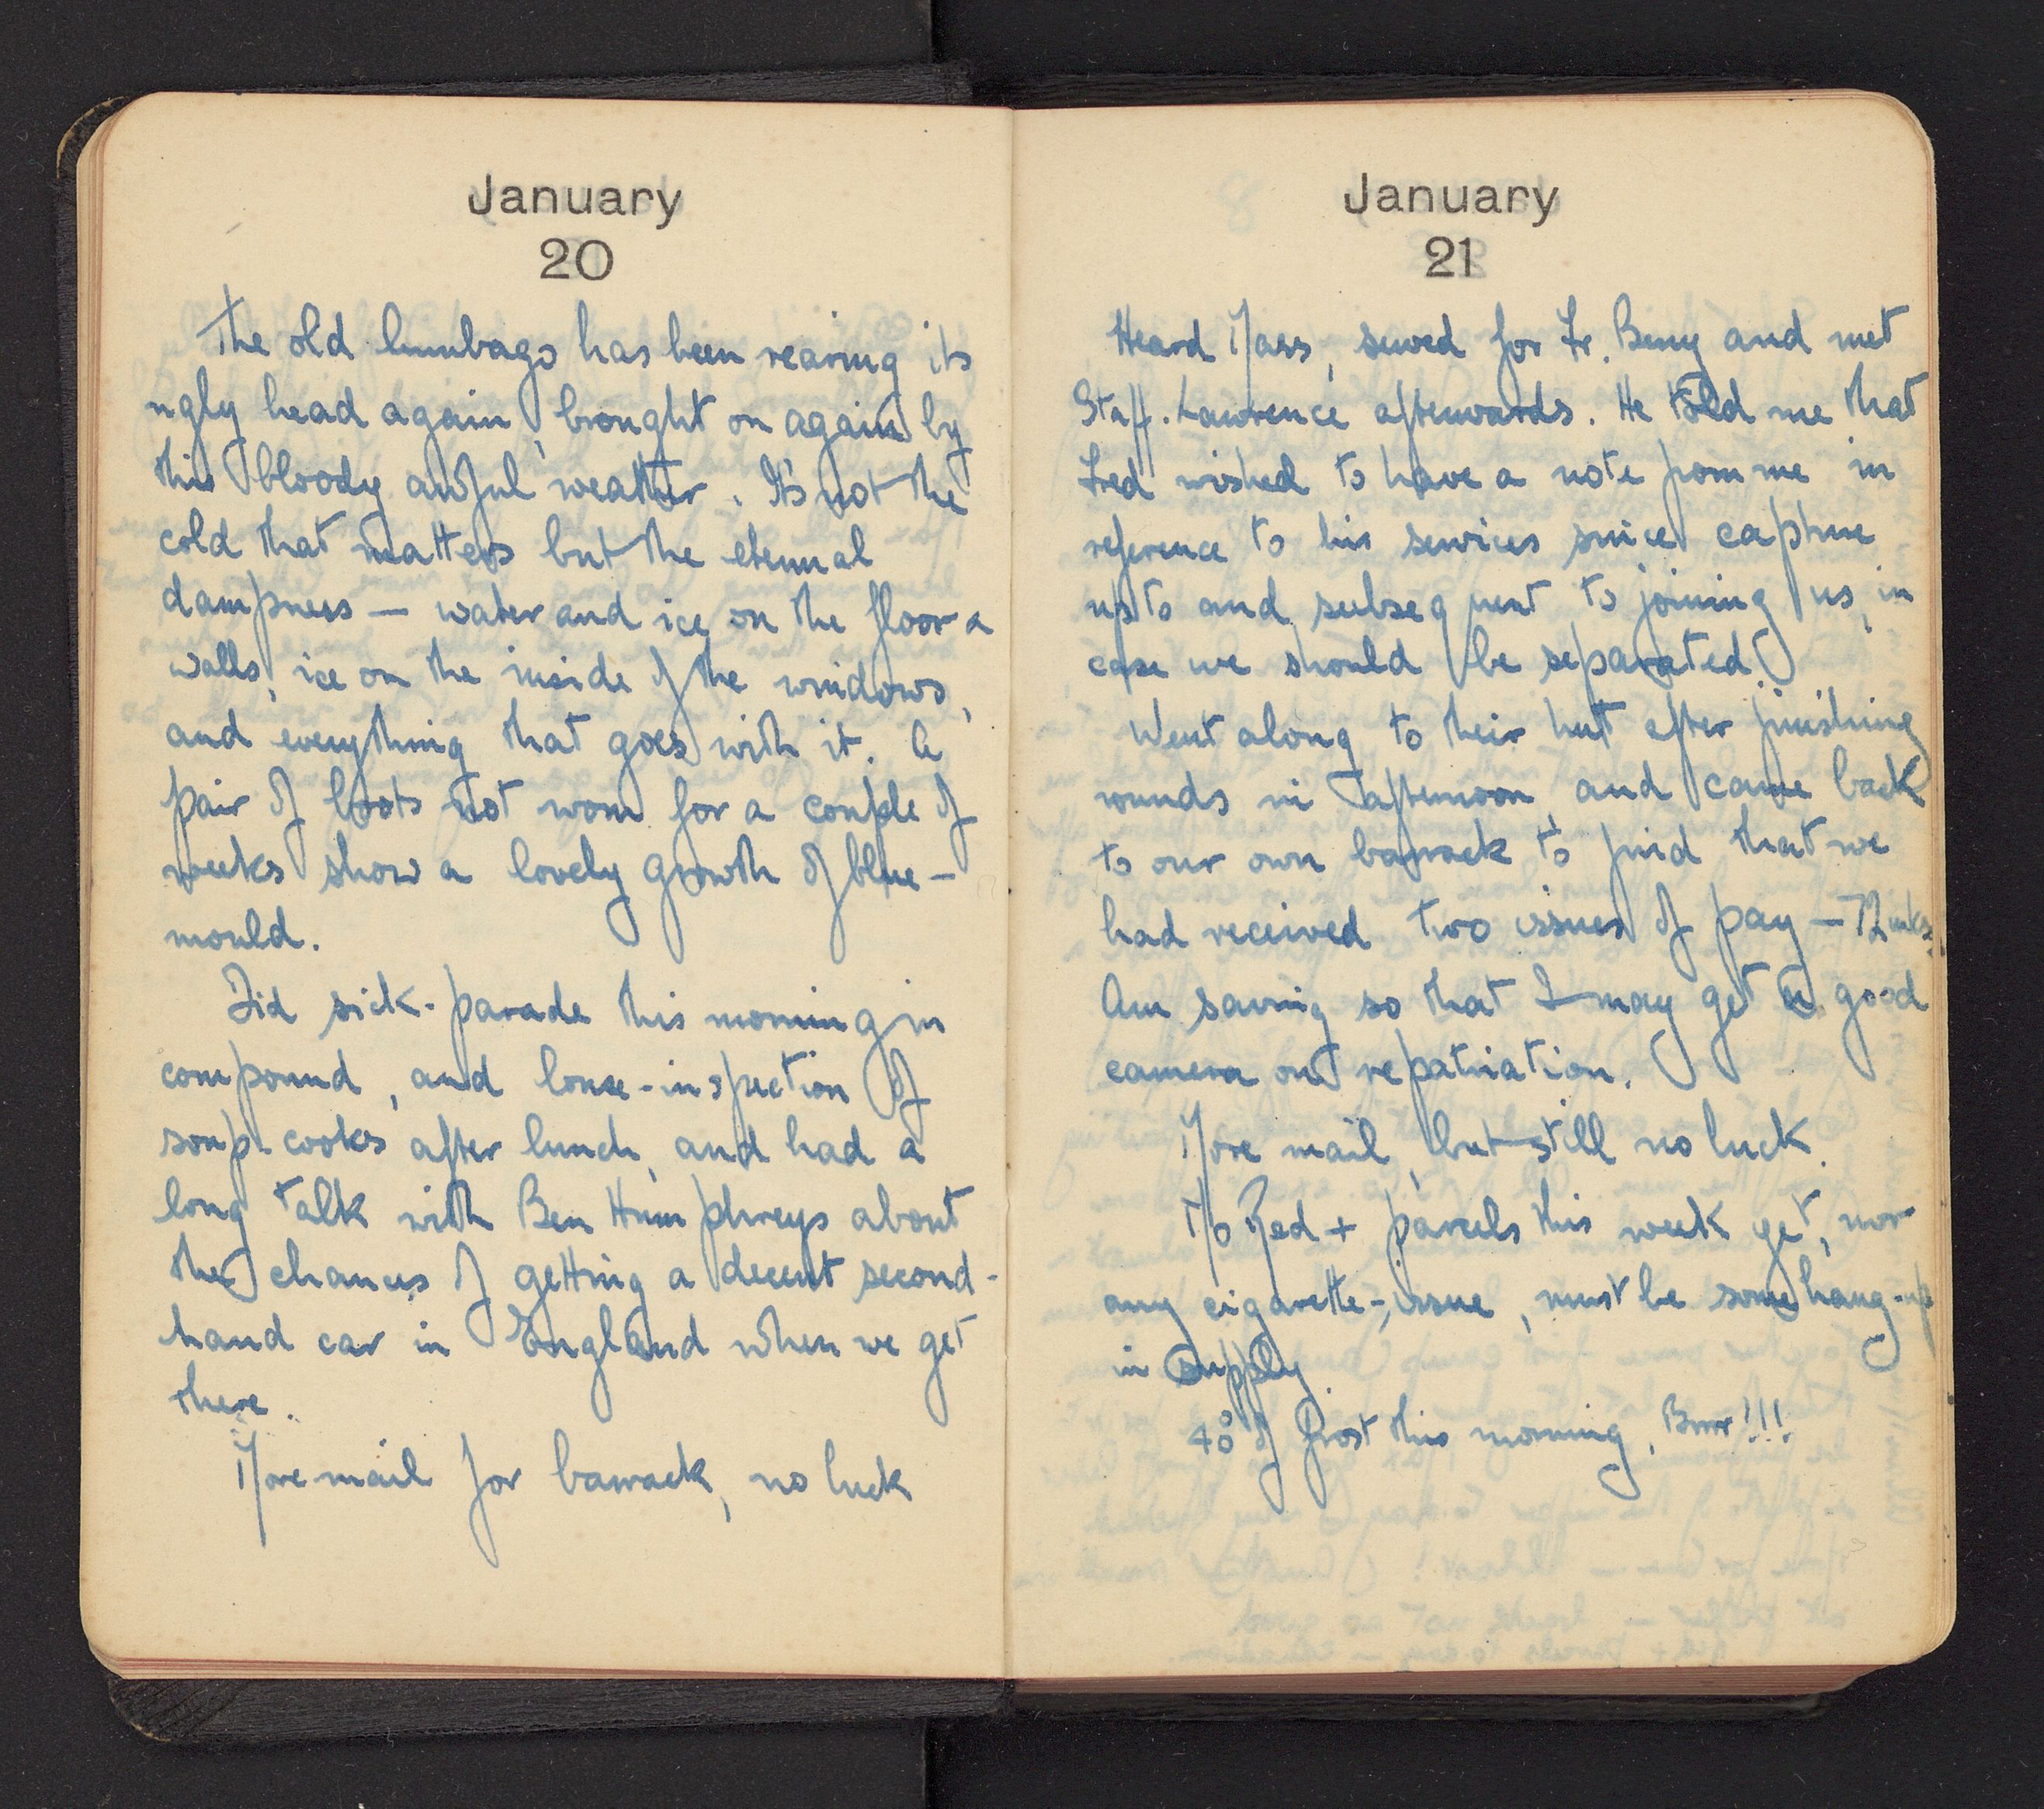 January
20
The old lumbago has been rearing its
ugly head again, brought on again by
this bloody awful weather. It's not the
cold that matters but the eternal
dampness — water and ice on the floor &
walls, ice on the inside of the windows,
and everything that goes with it. A
pair of boots not worn for a couple of
weeks show a lovely growth of blue-
mould.
Did sick-parade this morning in
compound, and louse-inspection of
soup-cooks after lunch, and had a
long talk with Ben Humphreys about
the chances of getting a decent second-
hand car in England when we get
there.
More mail for barrack, no luck
January
21
Heard Mass, served for Fr. Berry and met
Staff. Lawrence afterwards. He told me that
Fred wished to have a note from me in
reference to his services since capture
up to and subsequent to joining us, in
case we should be separated.
Went along to their hut after finishing
rounds in afternoon and came back
to our own barrack to find that we
had received two issues of pay — 72 mks.
Am saving so that I may get a good
camera on repatriation.
More mail, but still no luck.
No Red + parcels this week yet, nor
any cigarette-issue, must be some hang-up
in supply.
40° of frost this morning, Brrr!!!